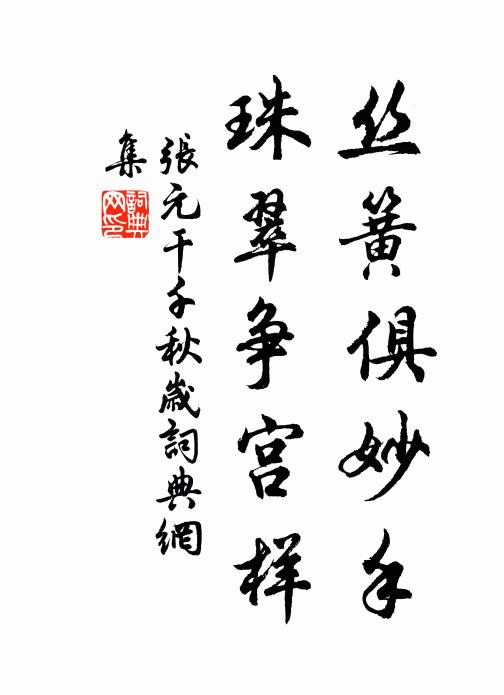 丝簧俱妙手
珠翠争宫样
張元干千秋歲詞典網
集
詞典
网印